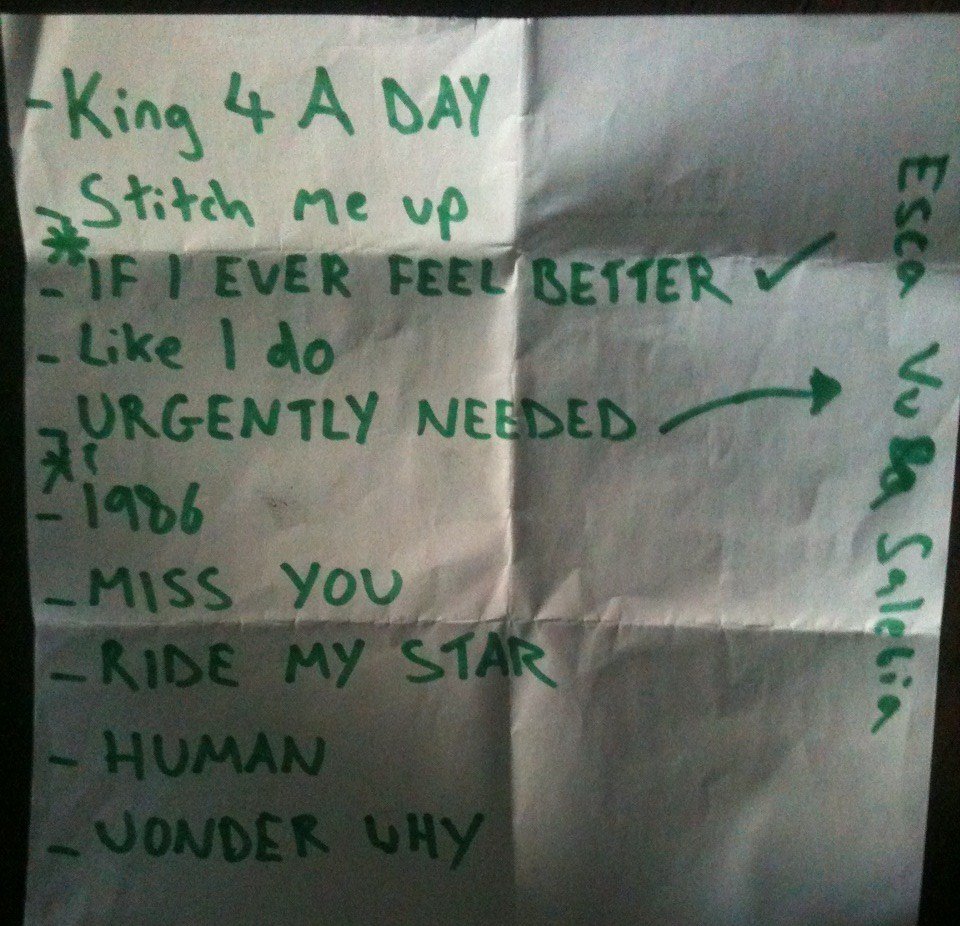 - King 4 A DAY
- Stitch me up
* - IF I EVER FEEL BETTER ✓
- Like I do
- URGENTLY NEEDED →
*? - 1986
- MISS YOU
- RIDE MY STAR
- HUMAN
- WONDER WHY
Esca